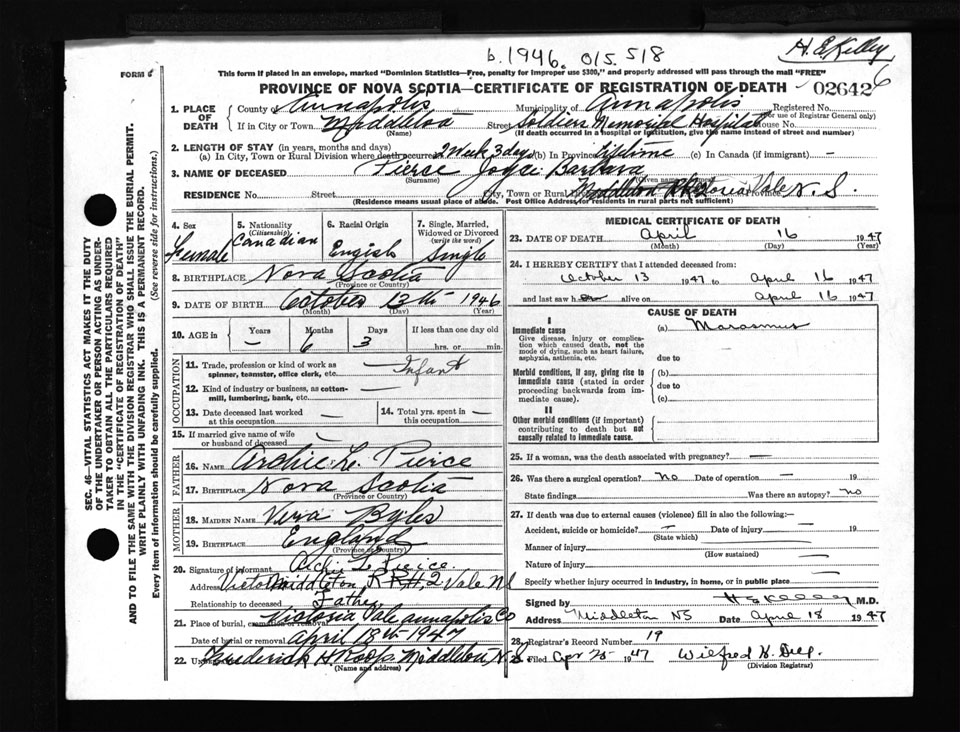 b. 1946. 015. 518
H. E. Kelley
FORM 6
This form if placed in an envelope, marked "Dominion Statistics—Free, penalty for improper use $300," and properly addressed will pass through the mail "FREE"
6
PROVINCE OF NOVA SCOTIA—CERTIFICATE OF REGISTRATION OF DEATH 02642
1. PLACE OF DEATH County of Annapolis Municipality of Annapolis Registered No.
(For use of Registrar General only)
If in City or Town Middleton (Name) Street Soldiers Memorial Hospital House No.
(If death occurred in a hospital or institution, give the name instead of street and number)
2. LENGTH OF STAY (in years, months and days)
(a) In City, Town or Rural Division where death occurred 2 Week 3 days (b) In Province Lifetime (c) In Canada (if immigrant) —
3. NAME OF DECEASED Pierce Joyce Barbara
(Surname) (Given names)
RESIDENCE No. Street City, Town or Rural Middleton Victoria Vale N. S.
(Residence means usual place of abode. Post Office Address for residents in rural parts not sufficient)
SEC. 46—VITAL STATISTICS ACT MAKES IT THE DUTY
OF THE UNDERTAKER OR PERSON ACTING AS UNDER-
TAKER TO OBTAIN ALL THE PARTICULARS REQUIRED
IN THE "CERTIFICATE OF REGISTRATION OF DEATH"
AND TO FILE THE SAME WITH THE DIVISION REGISTRAR WHO SHALL ISSUE THE BURIAL PERMIT.
WRITE PLAINLY WITH UNFADING INK. THIS IS A PERMANENT RECORD.
Every item of information should be carefully supplied. (See reverse side for instructions.)
4. Sex Female
5. Nationality (Citizenship) Canadian
6. Racial Origin English
7. Single, Married, Widowed or Divorced (write the word) Single
8. BIRTHPLACE Nova Scotia
(Province or Country)
9. DATE OF BIRTH October 13th 1946
(Month) (Day) (Year)
10. AGE in Years — Months 6 Days 3 If less than one day old
hrs. or min.
OCCUPATION
11. Trade, profession or kind of work as spinner, teamster, office clerk, etc. — Infant
12. Kind of industry or business, as cotton-mill, lumbering, bank, etc. —
13. Date deceased last worked at this occupation —
14. Total yrs. spent in this occupation —
15. If married give name of wife or husband of deceased —
FATHER
16. NAME Archie L. Pierce
17. BIRTHPLACE Nova Scotia
(Province or Country)
MOTHER
18. MAIDEN NAME Vera Byles
19. BIRTHPLACE England
(Province or Country)
20. Signature of informant Archie L. Pierce
Address Victoria Middleton, R R # 2 Vale NS
Relationship to deceased Father
21. Place of burial, cremation or removal Victoria Vale Annapolis Co
Date of burial or removal April 18th 1947
22. Undertaker Frederick H Roop, Middleton, N. S.
(Name and address)
MEDICAL CERTIFICATE OF DEATH
23. DATE OF DEATH April 16 1947
(Month) (Day) (Year)
24. I HEREBY CERTIFY that I attended deceased from:
October 13 1947 to April 16 1947
and last saw h er alive on April 16 1947
CAUSE OF DEATH
I
Immediate cause (a) Marasmus
Give disease, injury or complication which caused death, not the mode of dying, such as heart failure, asphyxia, asthenia, etc.
due to
Morbid conditions, if any, giving rise to immediate cause (stated in order proceeding backwards from immediate cause).
(b)
due to
(c)
II
Other morbid conditions (if important) contributing to death but not causally related to immediate cause.
25. If a woman, was the death associated with pregnancy? —
26. Was there a surgical operation? No Date of operation — 19
State findings Was there an autopsy? No
27. If death was due to external causes (violence) fill in also the following:—
Accident, suicide or homicide? — Date of injury — 19
(State which)
Manner of injury —
(How sustained)
Nature of injury —
Specify whether injury occurred in industry, in home, or in public place —
Signed by H E Kelley M.D.
Address Middleton NS Date April 18 1947
28. Registrar's Record Number 19
Filed Apr 25 1947
(Division Registrar)